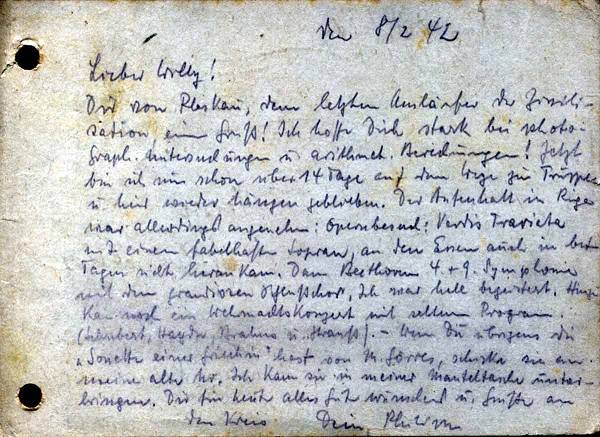 den 8/2 42
Lieber Willy!
Dir von Pleskau, dem letzten Ausläufer der Zivili-
sation ein Gruß! Ich hoffe Dich stark bei photo-
graph. Untersuchungen u. arithmet. Berechnungen! Jetzt
bin ich nun schon über 14 Tage auf dem Wege zur Truppe
u. hier wieder hängen geblieben. Der Aufenthalt in Riga
war allerdings angenehm: Opernbesuch: Verdis Traviata
mit einem fabelhaften Sopran, an den Essen auch in
Tagen nicht heran kam. Dann Beethoven 4. + 9. Symphonie
mit dem grandiosen Schlußchor, Ich war hell begeistert.
kam noch ein Wehrmachtskonzert mit Program.
(Schubert, Haydn, Brahms u. Strauß). – Wenn Du übrigens die
"Sonette einer Griechin" hast von M. Görres, schicke sie an
meine alte No. Ich kann sie in meiner Manteltasche unter-
bringen. Dir für heute alles Gute wünschend u. Grüße an
den Kreis Dein